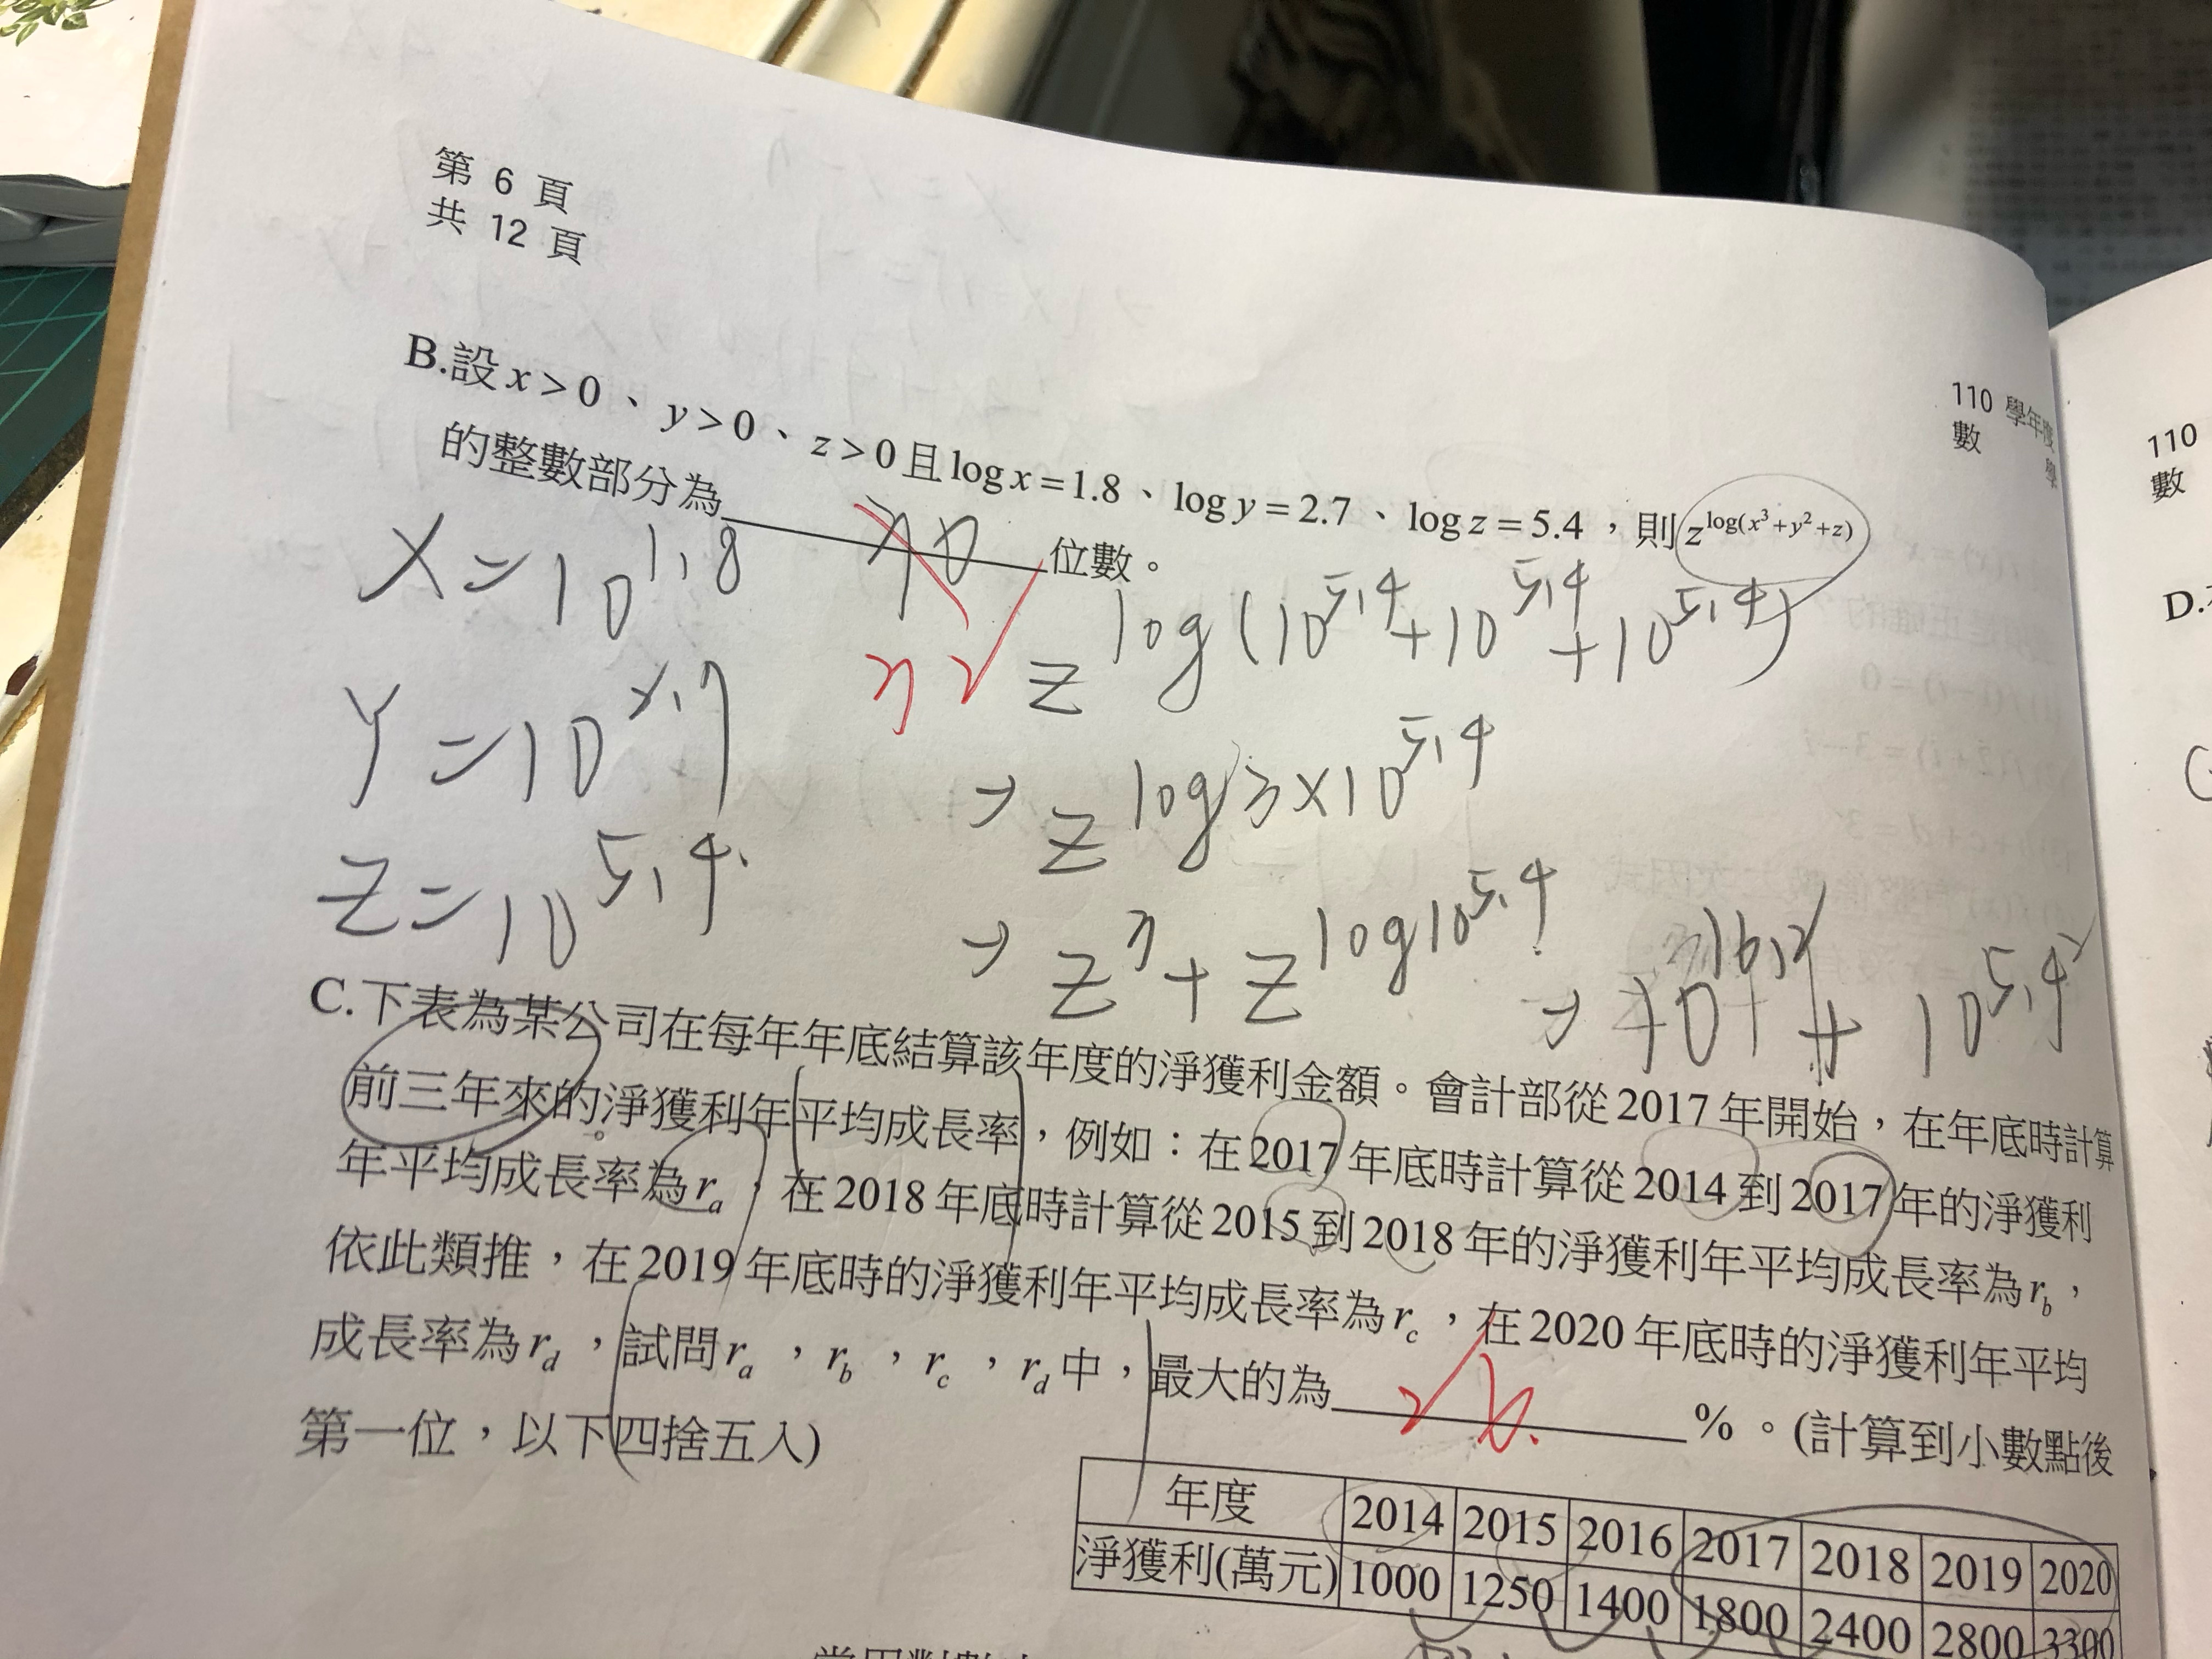 第 6 頁
共 12 頁
110 學年度
數 學
B.設 x > 0 、 y > 0 、 z > 0 且 log x = 1.8 、 log y = 2.7 、 log z = 5.4 ，則 z^{log(x³+y²+z)}
的整數部分為 位數。
x = 10^{1.8}
z^{log(10^{5.4}+10^{5.4}+10^{5.4})}
Y = 10^{2.7}
→ z^{log3×10^{5.4}}
z = 10^{5.4}
→ z^{3} + z^{log10^{5.4}}
+ 10^{5.4²}
C.下表為某公司在每年年底結算該年度的淨獲利金額。會計部從 2017 年開始，在年底時計算
前三年來的淨獲利年平均成長率，例如：在 2017 年底時計算從 2014 到 2017 年的淨獲利
年平均成長率為 r_a，在 2018 年底時計算從 2015 到 2018 年的淨獲利年平均成長率為 r_b，
依此類推，在 2019 年底時的淨獲利年平均成長率為 r_c，在 2020 年底時的淨獲利年平均
成長率為 r_d，試問 r_a，r_b，r_c，r_d 中，最大的為 %。(計算到小數點後
第一位，以下四捨五入)
年度 2014 2015 2016 2017 2018 2019 2020
淨獲利(萬元) 1000 1250 1400 1800 2400 2800 3300
110
數
D.